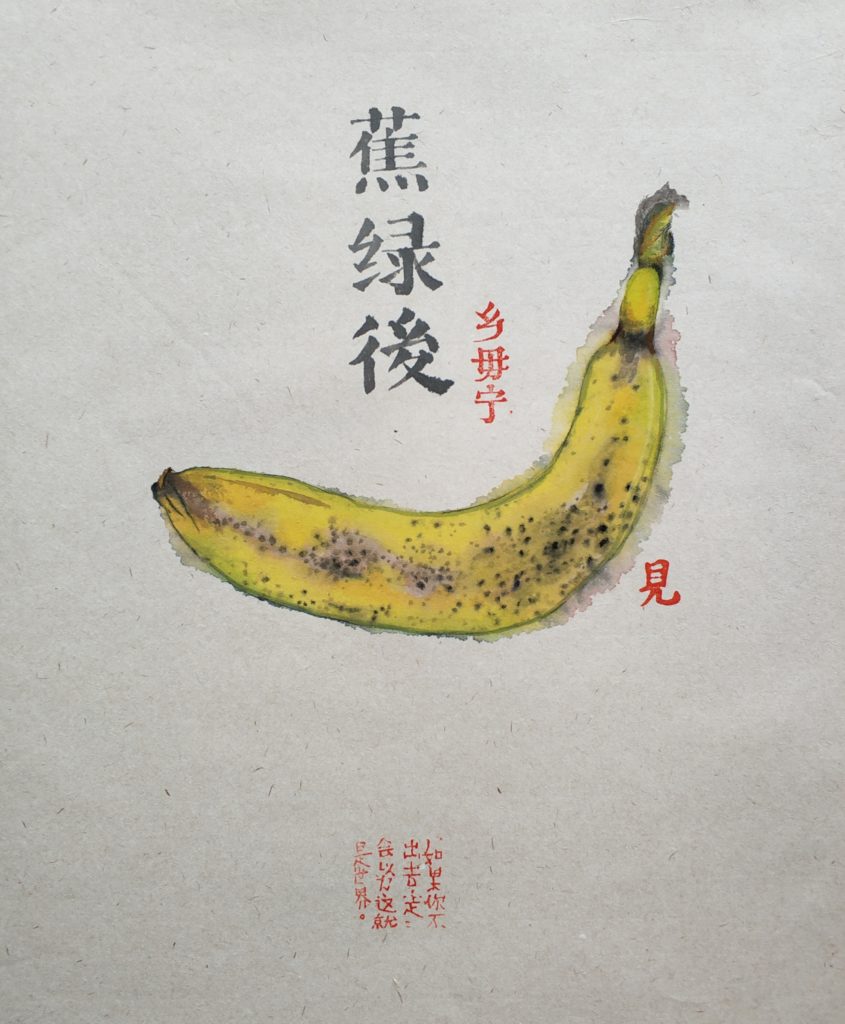 蕉绿後
乡毋宁
見
如果你不
出去走:
会以为这就
是世界。